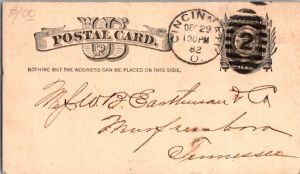 1500
POSTAL CARD.
NOTHING BUT THE ADDRESS CAN BE PLACED ON THIS SIDE.
CINCINNATI
DEC 29
130PM
82
O.
2
W. B. Earthman & Co
Murfreesboro
Tennessee